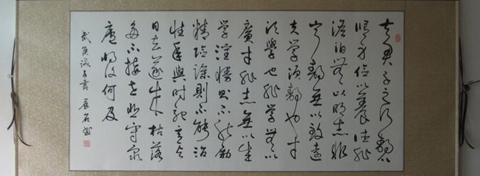 夫君子之行静以
修身俭以養德非
澹泊無以明志非
宁静無以致遠
夫学须静也才
须学也非学無以
廣才非志無以成
学淫慢则不能励
精險躁则不能治
性年与时驰意与
日去遂成枯落
多不接世悲守窮
廬将復何及
武侯诫子書